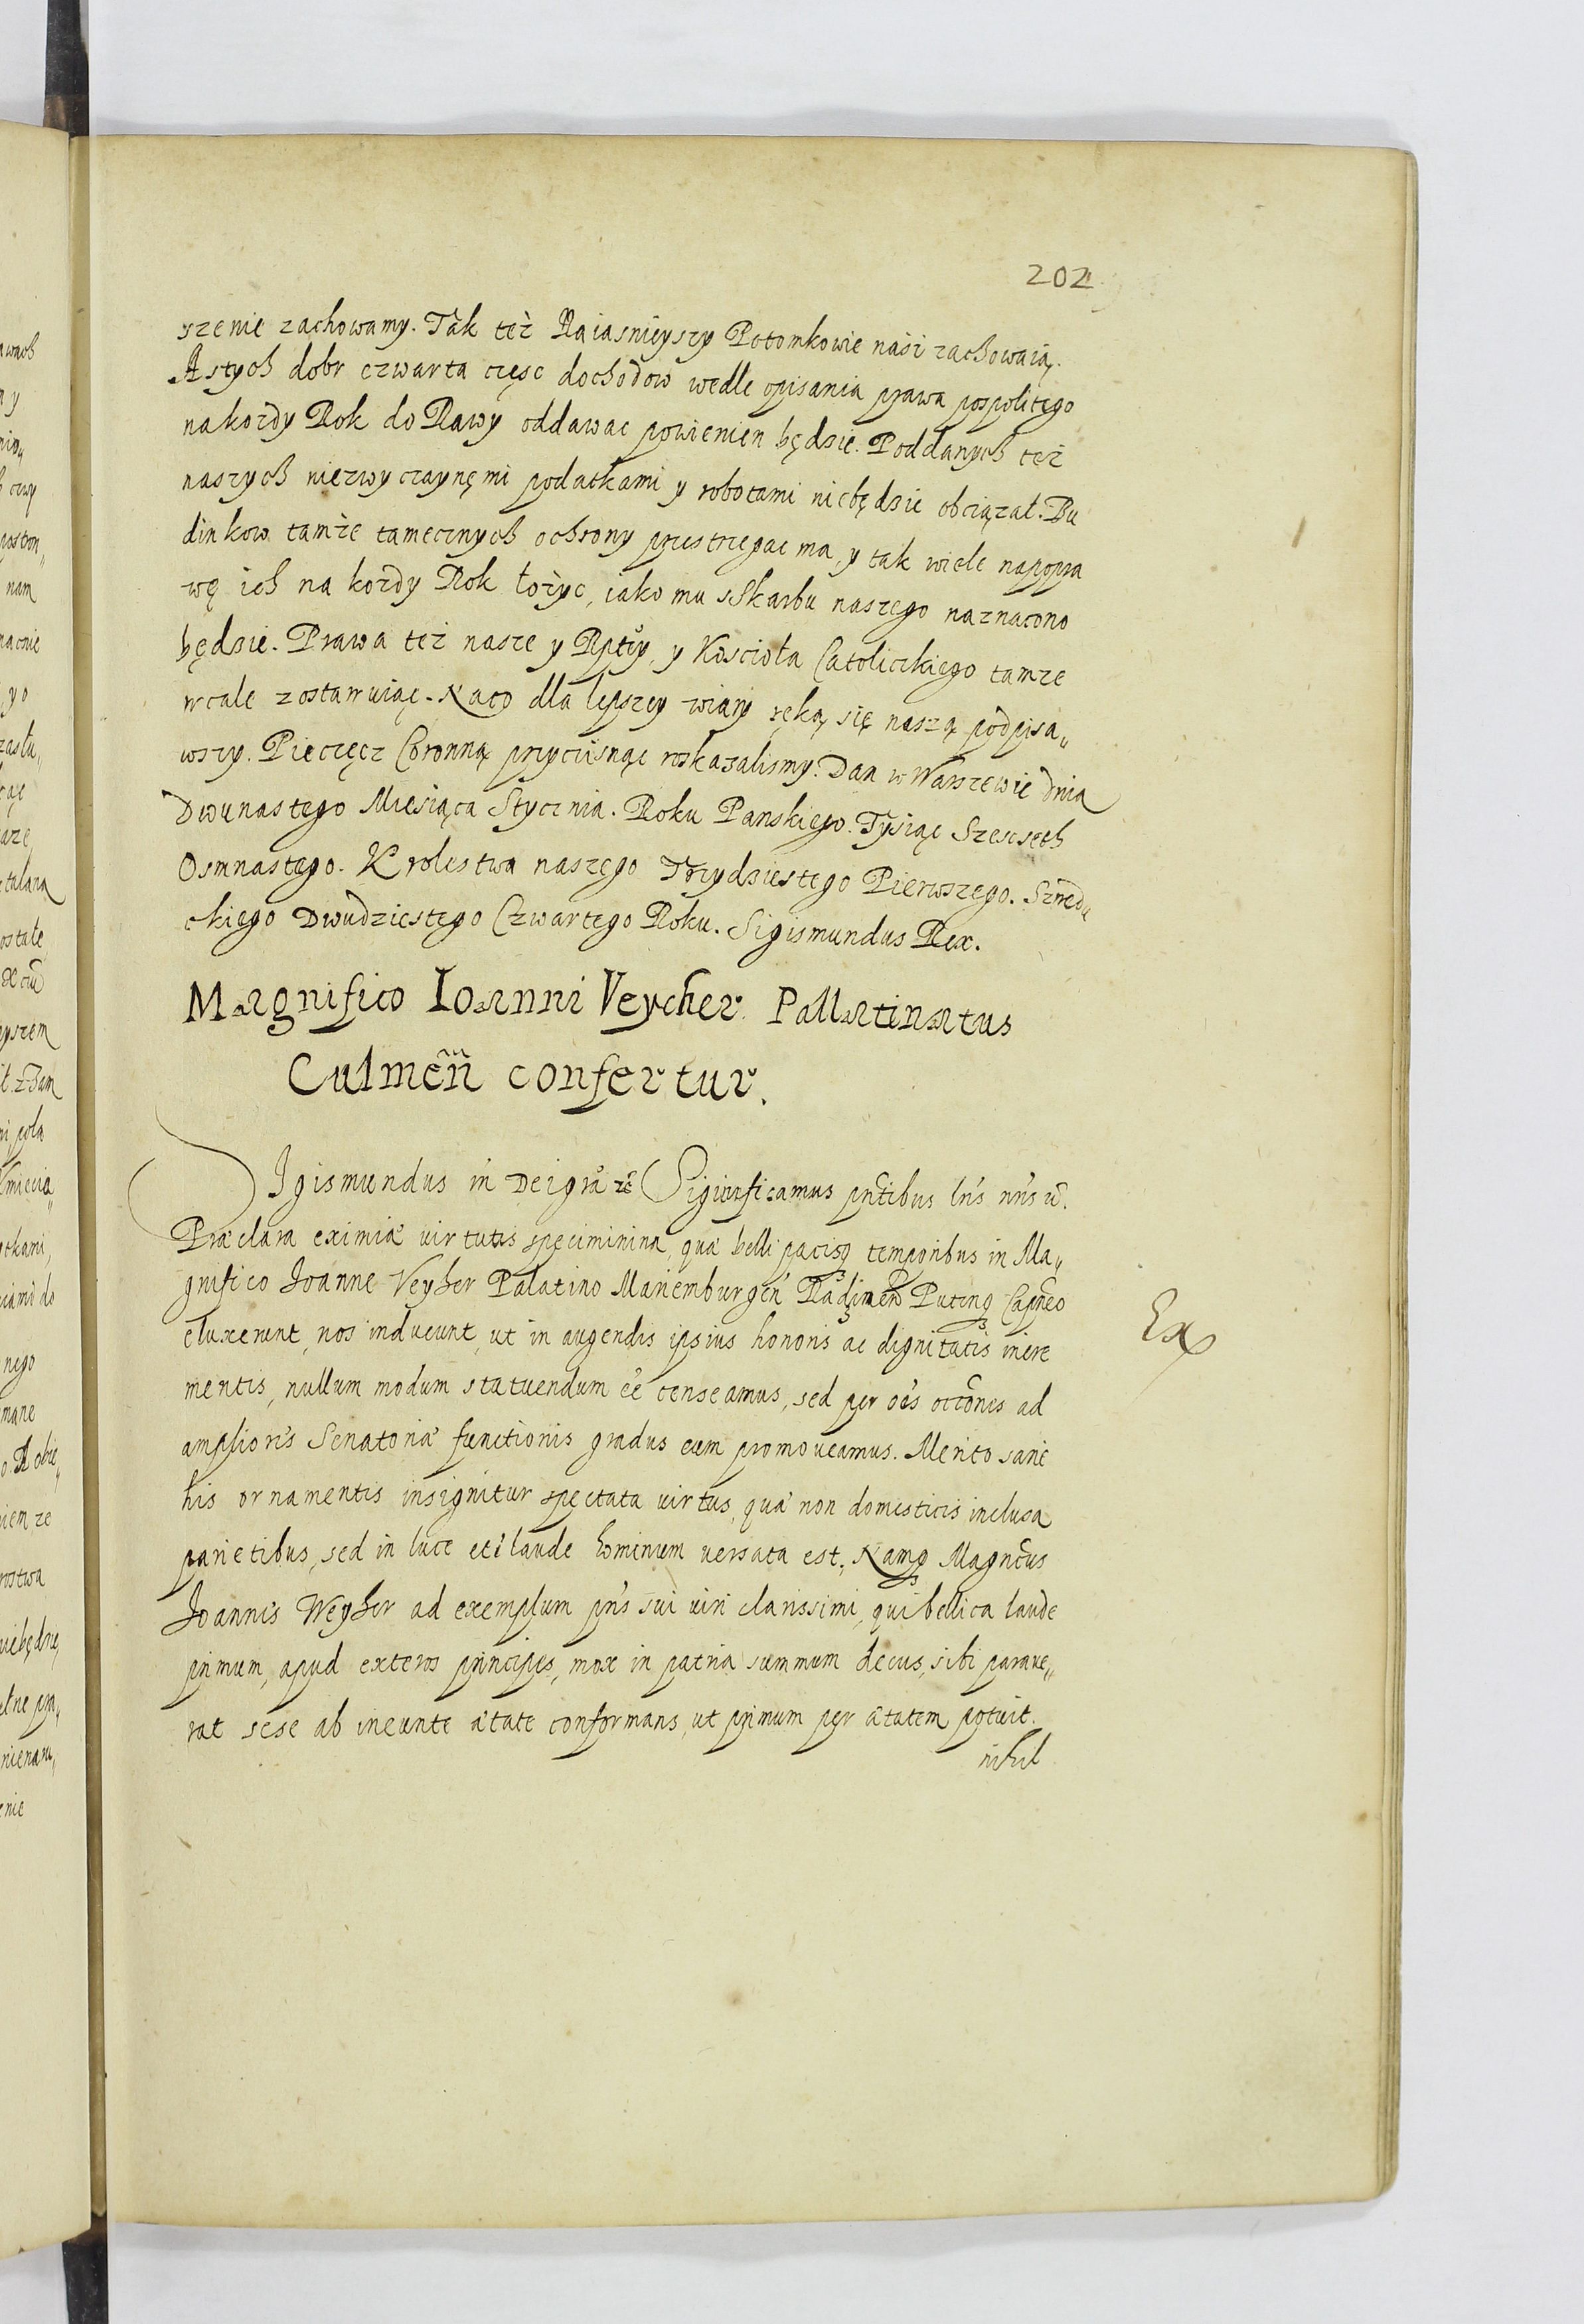 202
szenie zachowamy. Tak też Naiasnieyszy Potomkowie nasi zachowaią.
A stych dobr czwarta częsc dochodow wedle opisania prawa pospolitego
nakozdy Rok do Rawy oddawac powienien będzie. Poddanych też
naszych niezwyczaynęmi podatkami y robotami niebędzie obciązał. Bu
dinkow tamże tamecznych ochrony przestrzegac ma, y tak wiele napopra
wę ich na kozdy Rok łożyc, iako mu sSkarbu naszego naznacono
będzie. Prawa też nasze y Rptey, y Koscioła Catolickiego tamze
wcale zostawuiąc. Naco dla lepszey wiary ręką się naszą podpisa„
wszy. Pieczęcz Coronną przycisnąc roskazalismy. Dan w Warszewie dnia
Dwunastego Miesiąca Stycznia. Roku Panskiego. Tysiąc Szescseth
Osmnastego. Krolestwa naszego Trzydziestego Pierwszego. Szwedz
ckiego Dwudziestego Czwartego Roku. Sigismundus Rex.
Magnifico Ioanni Veycher. Pallatinatus
Culmeñ confertur.
Igismundus iii Dei gra &c Significamus pntibus lris nris &.
Præclara eximiæ virtutis speciminina, quæ belli pacisq temporibus in Ma„
gnifico Joanne Veyher Palatino Mariemburgen Radzinen Puteng Capneo
eluxerunt, nos inducunt, ut in augendis ipsius honoris ac dignitatis incre
mentis, nullum modum statuendum ee censeamus, sed per oes occones ad
ampliores Senatoriæ functionis gradus eum promoveamus. Merito sane
his ornamentis insignitur spectata virtus, quæ non domesticis inclusa
parietibus, sed in luce et i laude hominum versata est, Namq Magncus
Joannes Weyher ad exemplum pris sui viri clarissimi, qui bellica laude
primum, apud exteros principes, mox in patria summum decus, sibi parave„
rat sese ab ineunte ætate conformans, ut primum per ætatem potuit.
nihil
Ex